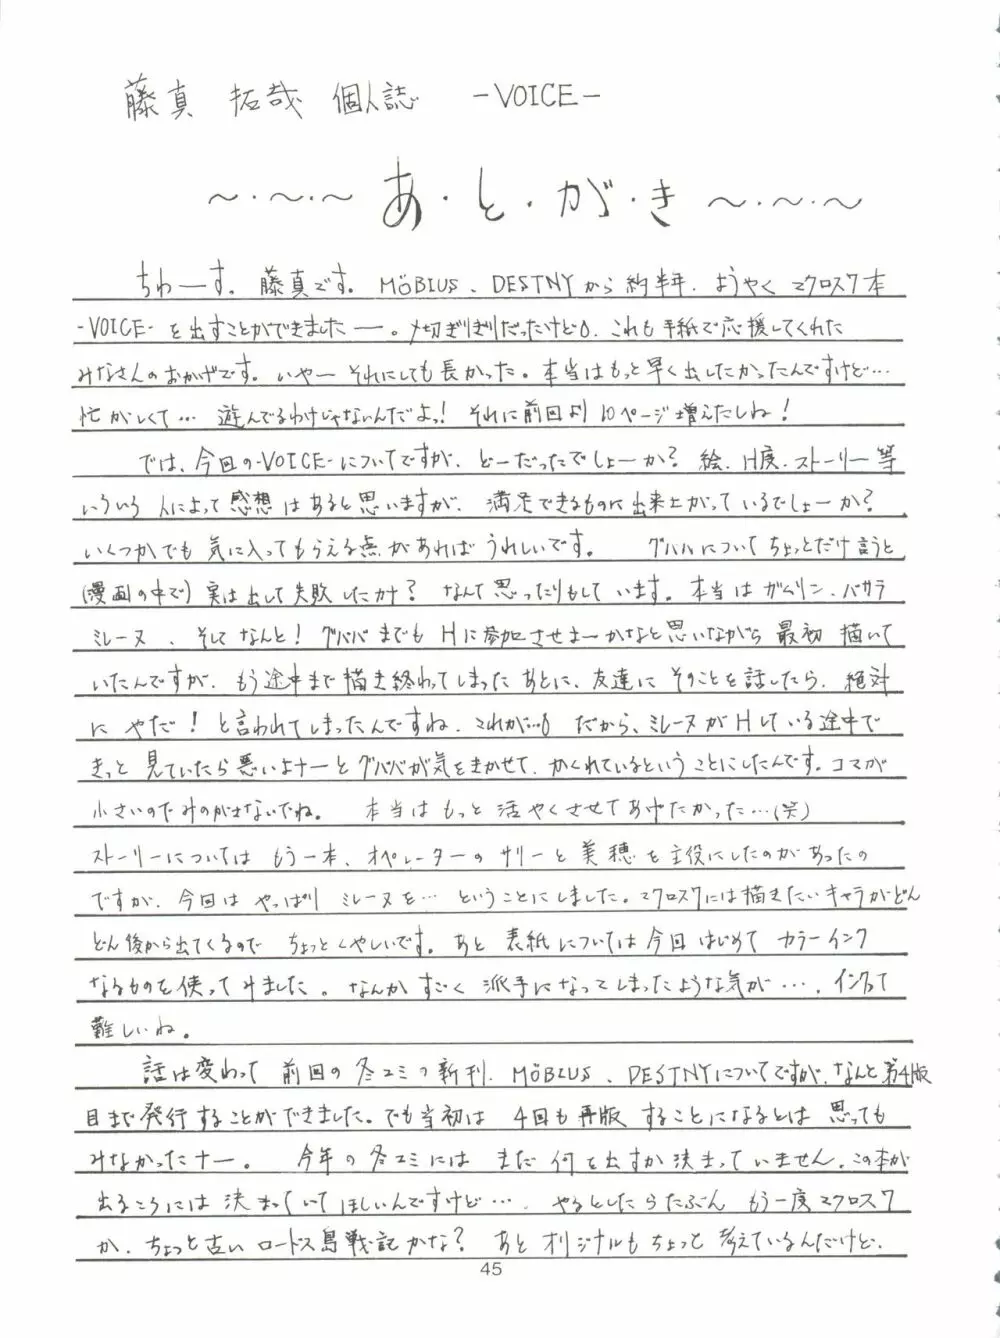 藤真 拓哉 個人誌 -VOICE-
〜・〜・〜 あ・と・が・き 〜・〜・〜
ちわーす。藤真です。MÖBIUS、DESTNYから約半年、ようやくマクロス7本
-VOICE- を出すことができましたー。〆切ぎりぎりだったけど。これも手紙で応援してくれた
みなさんのおかげです。いやー それにしても長かった。本当はもっと早く出したかったんですけど…
忙がしくて… 遊んでるわけじゃないんだよっ！ それに前回より10ページ増えたしね！
では、今回の-VOICE-についてですが、どーだったでしょーか？絵、H度、ストーリー等
いろいろ人によって感想はあると思いますが、満足できるものに出来上がっているでしょーか？
いくつかでも 気に入ってもらえる点があれば うれしいです。 グババについてちょっとだけ言うと
(漫画の中で) 実は出して失敗したカナ？ なんて思ったりもしています。本当はガムリン、バサラ
ミレーヌ、そしてなんと！グババまでもHに参加させまーかなと思いながら 最初 描いて
いたんですが、もう途中まで描き終わってしまったあとに、友達に そのことを話したら、絶対
に やだ！と言われてしまったんですね、これが…。だから、ミレーヌがHしている途中で
きっと 見ていたら悪いよナーとグババが気をきかせて、かくれているということにしたんです。コマが
小さいのでみのがさないでね。 本当は もっと 活やくさせてあげたかった…(笑)
ストーリーについては もう一本、オペレーターの サリーと美穂を主役にしたのがあったの
ですが、今回は やっぱり ミレーヌを… ということにしました。マクロス7には描きたいキャラがどん
どん後から出てくるので ちょっとくやしいです。あと 表紙については今回 はじめて カラーインク
なるものを使ってみました。なんかすごく 派手になってしまったような気が…、インクって
難しいね。
話は変わって 前回の冬コミの新刊、MÖBIUS、DESTNYについてですが、なんと第4版
目まで発行することができました。でも当初は 4回も再版 することになるとは 思っても
みなかったナー。 今年の冬コミには まだ 何を出すか決まっていません。この本が
出るころには 決まっていてほしいんですけど…、やるとしたらたぶん もう一度マクロス7
か、ちょっと古い ロードス島戦記かな？ あと オリジナルもちょっと 考えているんだけど、
45